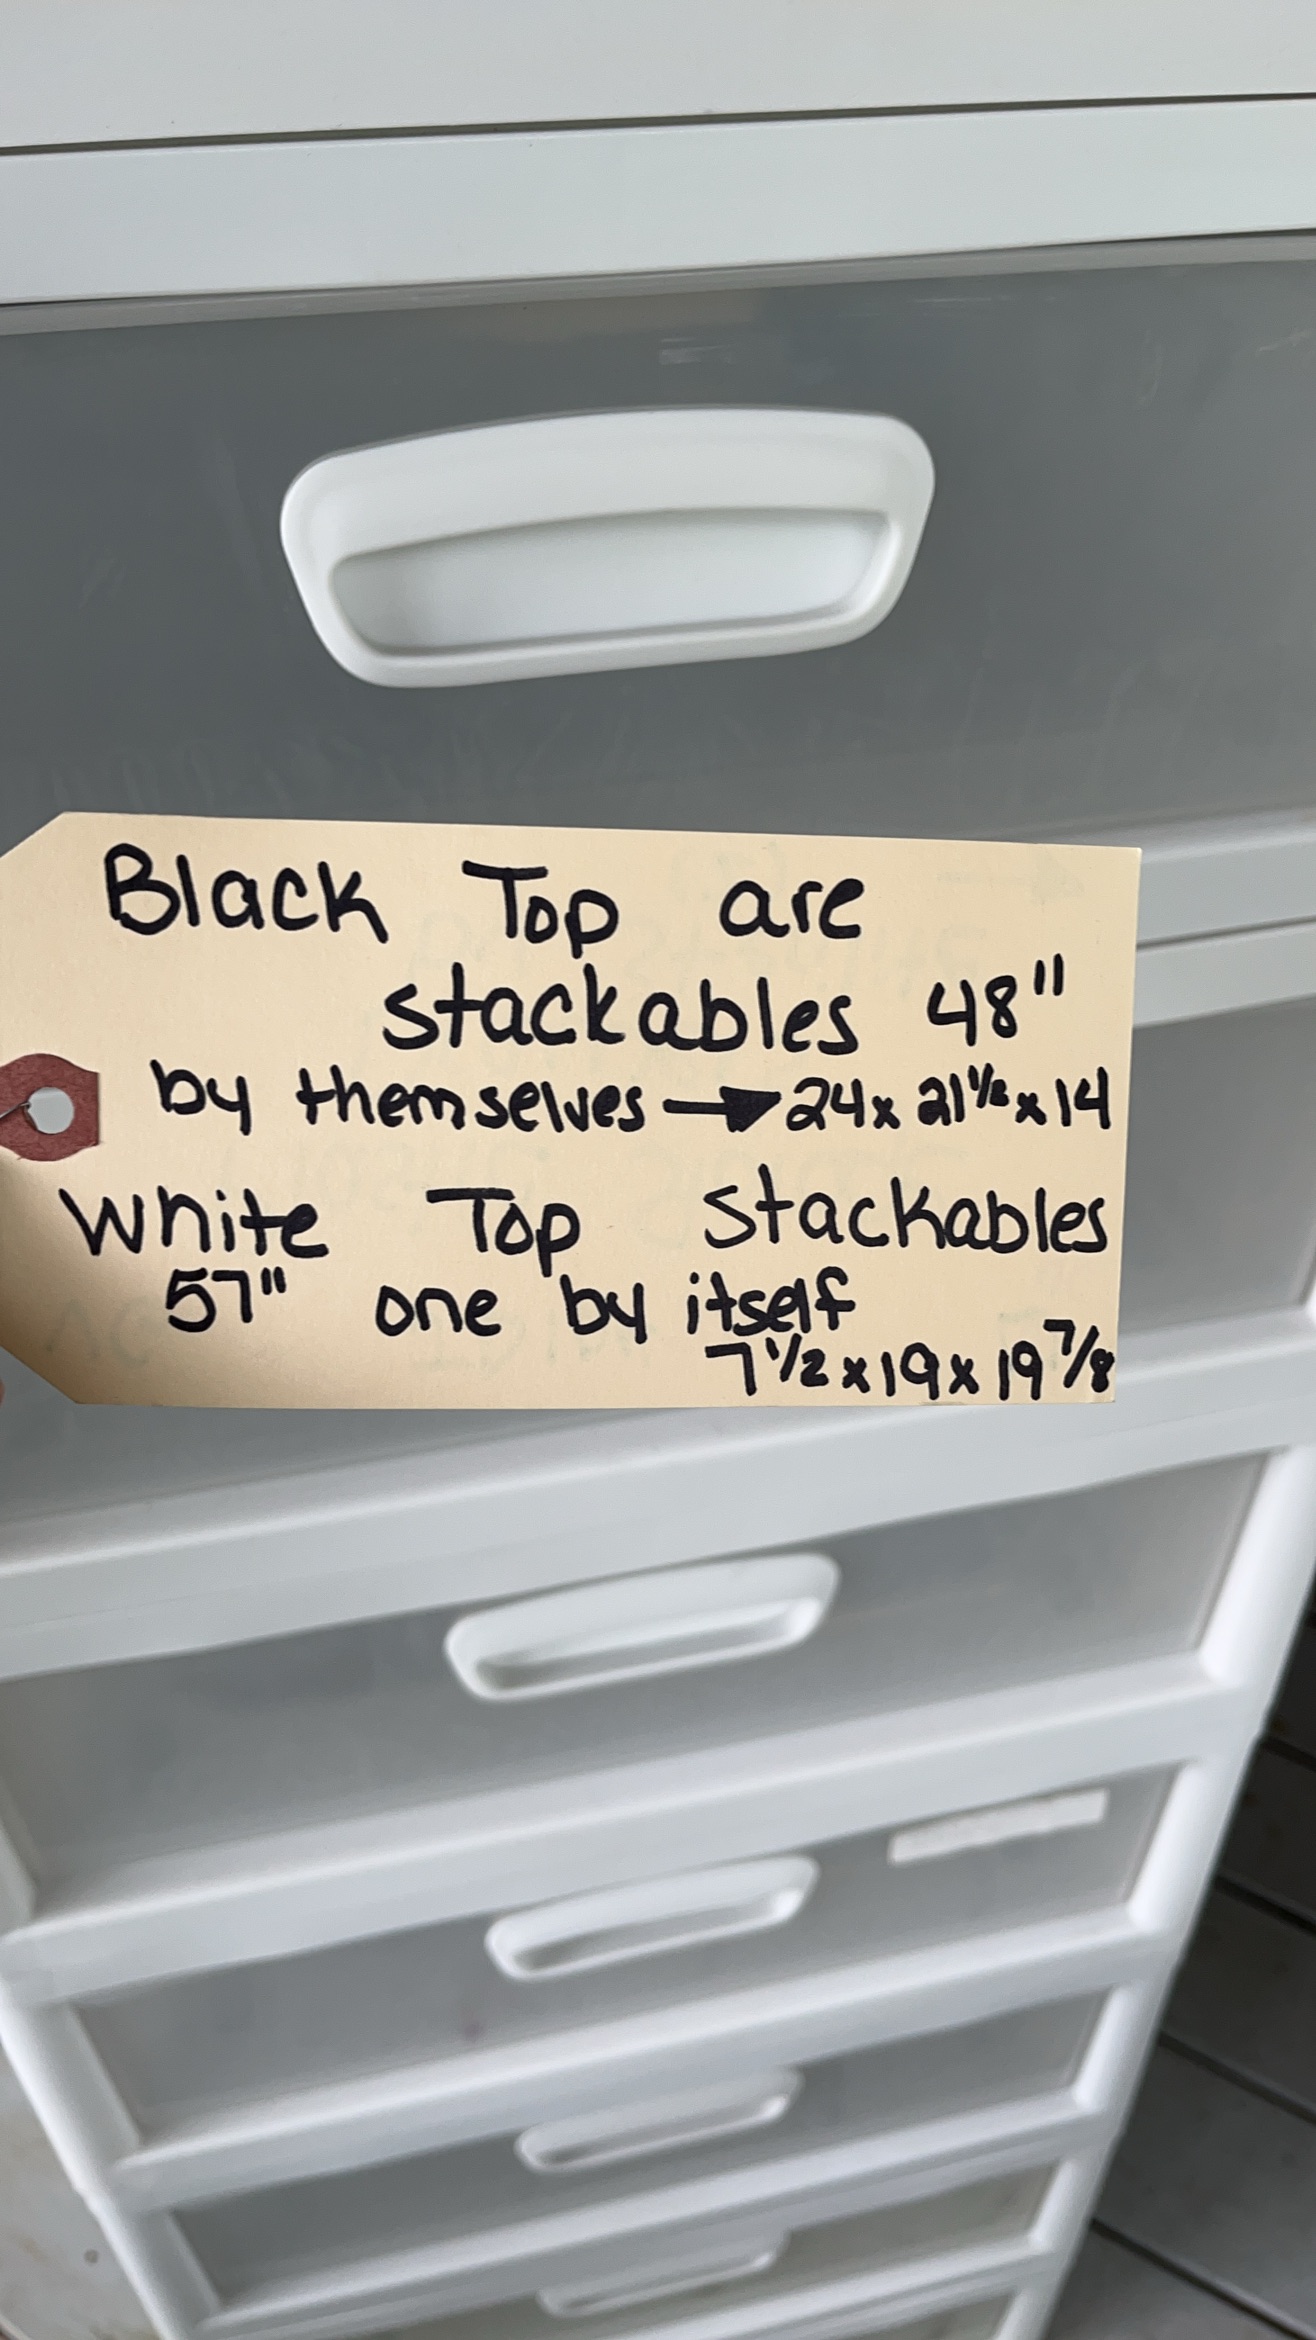 Black Top are
stackables 48"
by themselves → 24x 21 1/8 x 14
White Top Stackables
57" one by itself
7 1/2 x 19 x 19 7/8